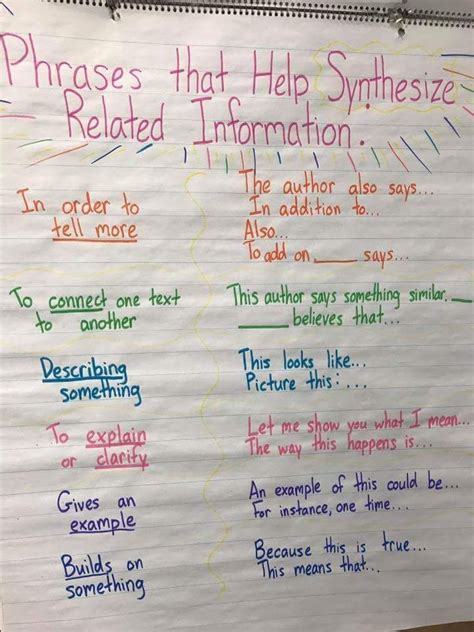 Phrases that Help Synthesize
Related Information.
In order to
tell more
The author also says...
In addition to...
Also...
To add on _____ says...
To connect one text
to another
This author says something similar. __
_____ believes that...
Describing
something
This looks like...
Picture this: ...
To explain
or clarify
Let me show you what I mean...
The way this happens is...
Gives an
example
An example of this could be...
For instance, one time...
Builds on
something
Because this is true...
This means that...